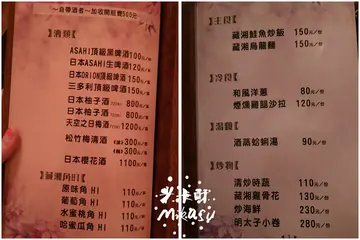 ～自帶酒者～加收開瓶費500元～
】酒類【
ASAHI頂級黑啤酒100元/杯
日本ASAHI生啤酒120元/杯
日本ORION頂級酒150元/瓶
三多利頂級啤酒150元/瓶
日本柚子酒 800元/瓶
日本柚子酒 800元/瓶
天空之日梅酒 1200元/瓶
松竹梅清酒 200元/瓶
300元/瓶
日本櫻花酒 1100元/瓶
】藏湘角HI【
原味角 HI 110元/杯
葡萄角 HI 110元/杯
水蜜桃角 HI 110元/杯
哈蜜瓜角 HI 110元/杯
】主食【
藏湘鮭魚炒飯 150元/份
藏湘烏龍麵 150元/份
】冷食【
和風洋蔥 80元/份
煙燻雞腿沙拉 120元/份
】湯類【
酒蒸蛤蜊湯 90元/份
】炒物【
清炒時蔬 110元/份
藏湘雞骨花 130元/份
炒海鮮 230元/份
明太子小卷 280元/份
米卡肆
Mikasu